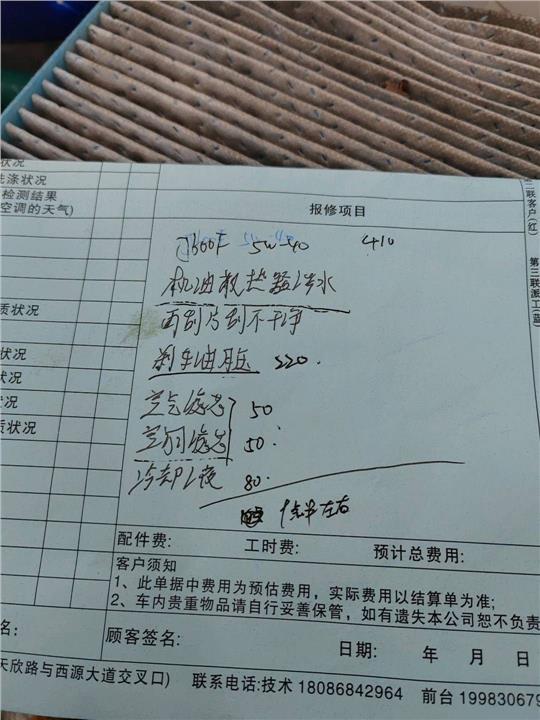 状况
洗涤状况
检测结果
空调的天气)
报修项目
二联客户(红)
第三联派工(蓝)
5w-40 410
机油散热器渗水
雨刮片刮不干净
质状况
状况
状况
状况
质状况
刹车油脏 220.
空气滤芯 50
空调滤芯 50.
冷却液 80.
点半左右
配件费: 工时费: 预计总费用:
客户须知
1、此单据中费用为预估费用，实际费用以结算单为准;
2、车内贵重物品请自行妥善保管，如有遗失本公司恕不负责
名: 顾客签名: 日期: 年 月 日
天欣路与西源大道交叉口) 联系电话:技术 18086842964 前台 199830679